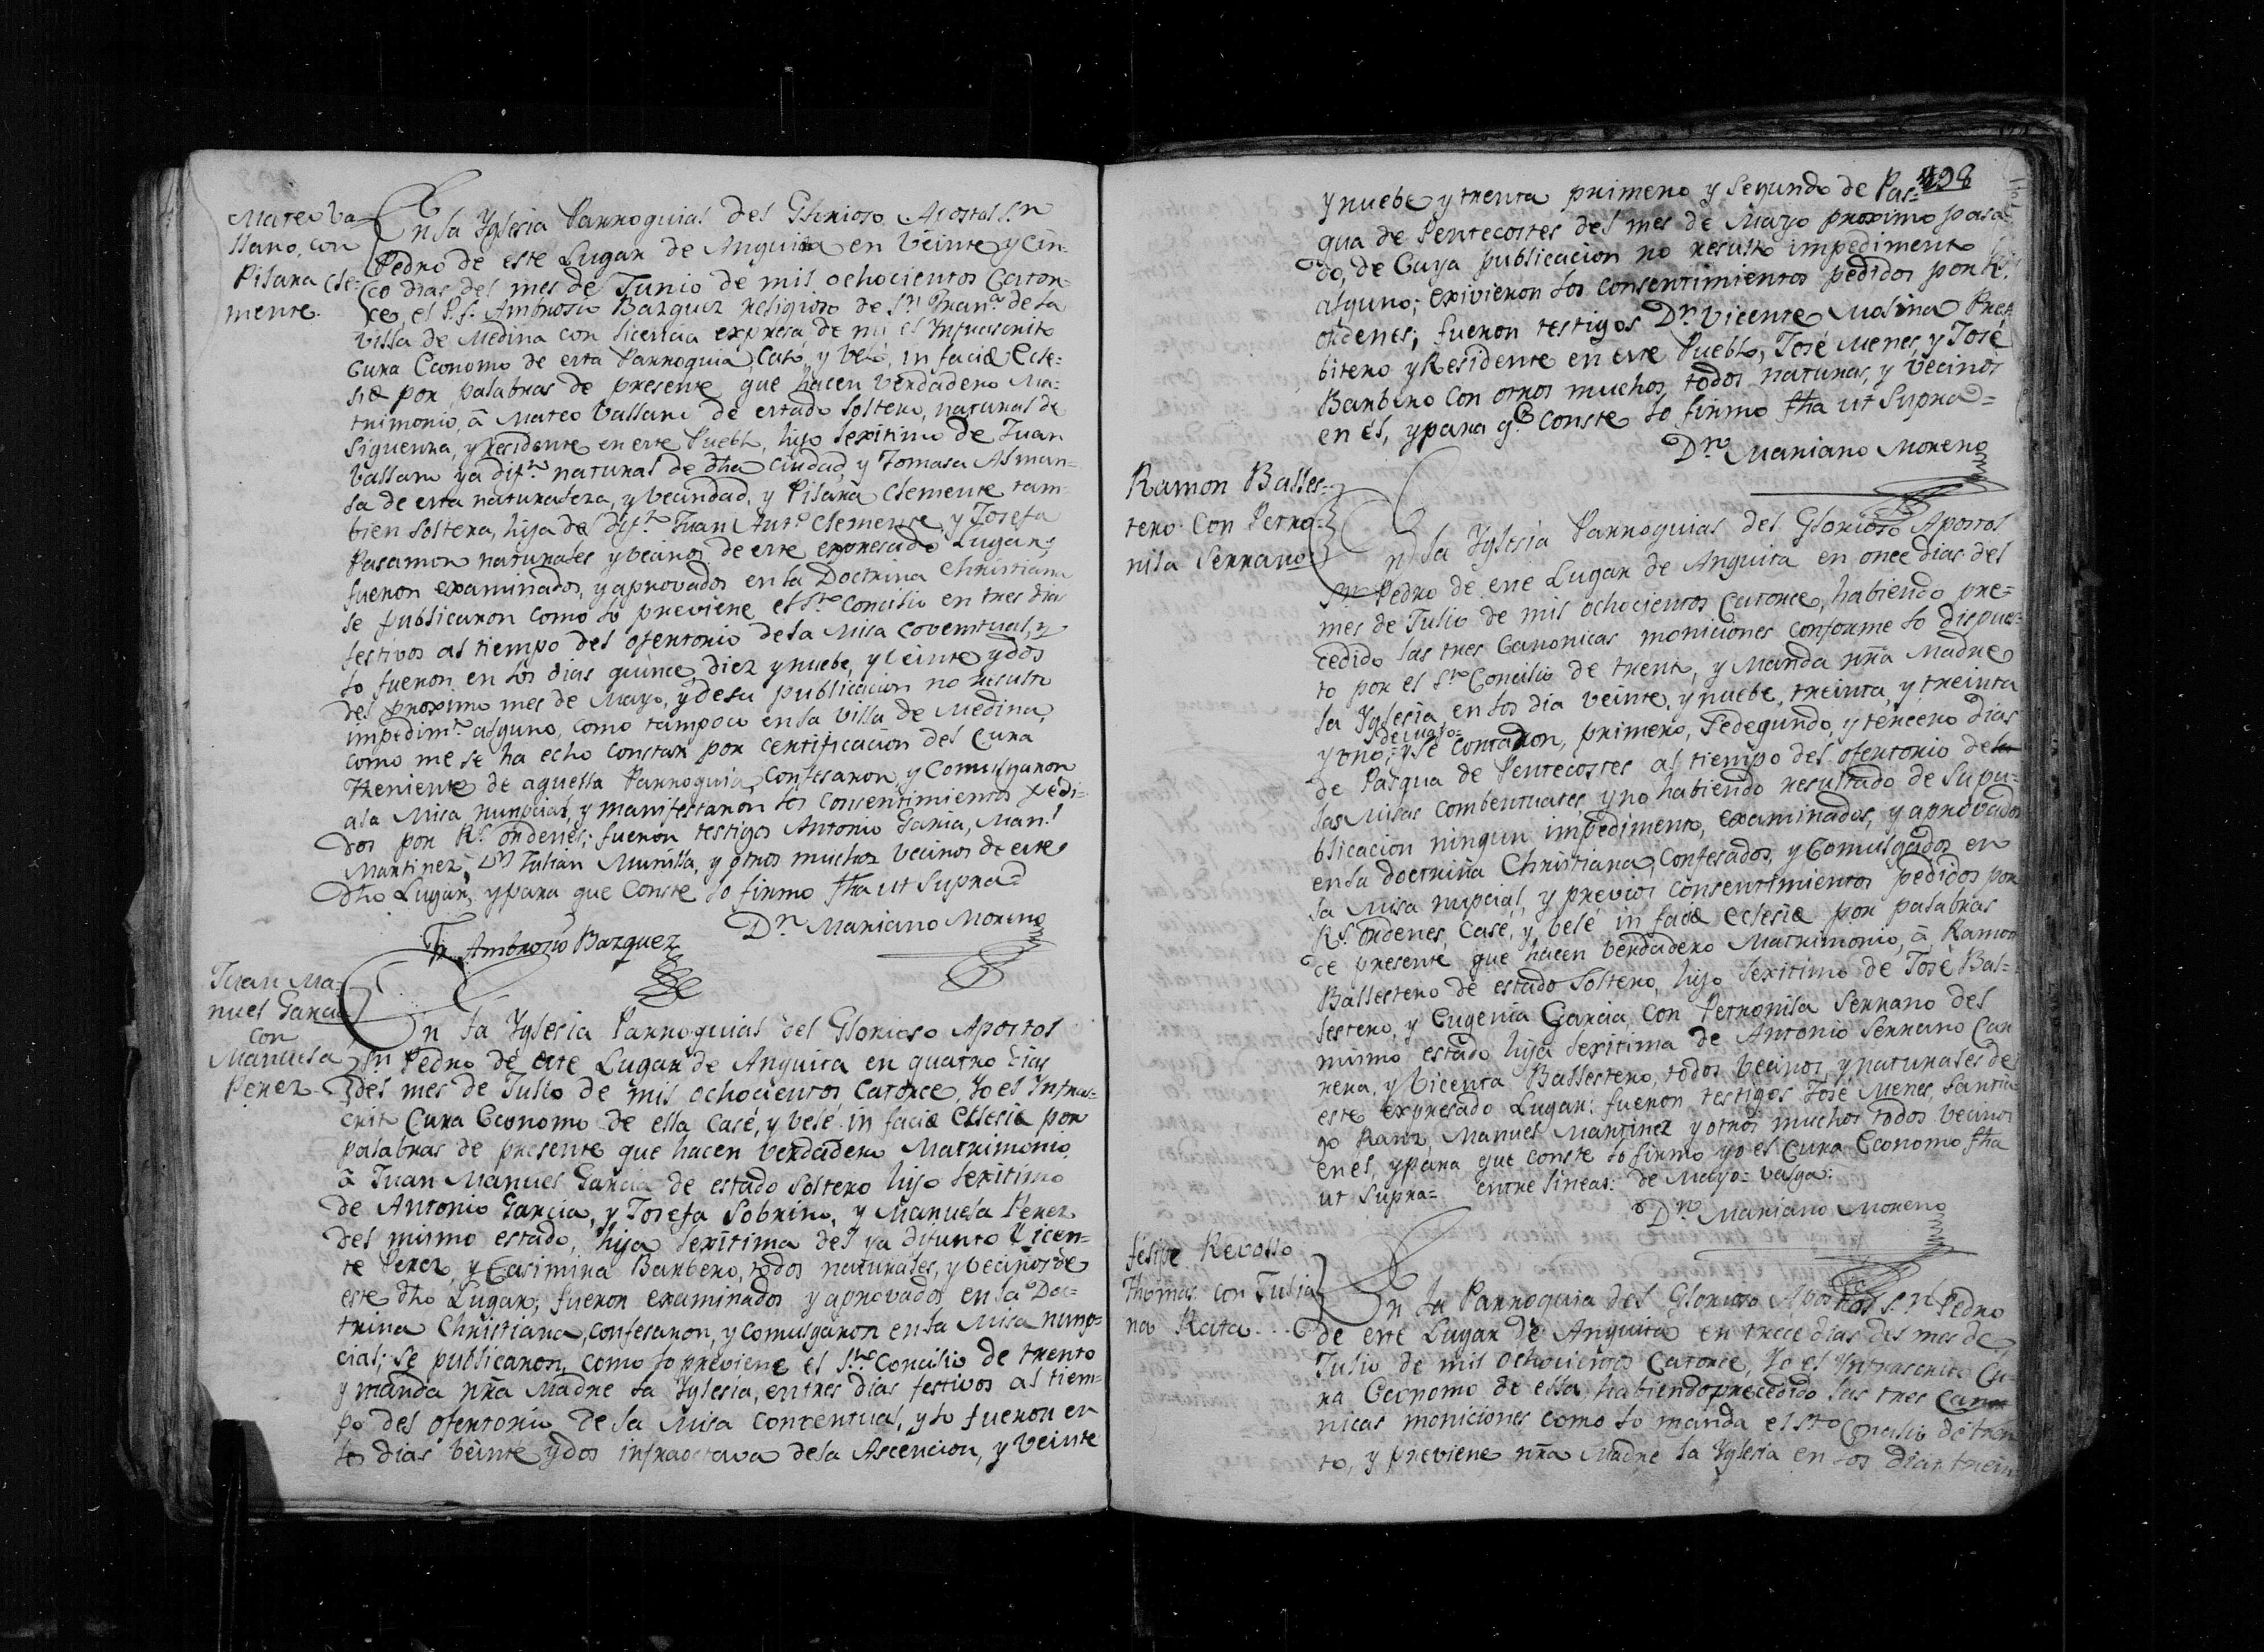 Mateo Va-
llano, con
Pilara Cle-
mente.
En la Yglesia Parroquial del Glorioso Apostol Sn
Pedro de este Lugar de Anguita en veinte y cin-
co dias del mes de Junio de mil ochocientos Cator-
ce, el P. f. Ambrosio Bazquez religioso de Sn Franco de la
Villa de Medina con licencia expresa de mi el Infrascrito
Cura Economo de esta Parroquia, Casó, y veló, in faciæ Ecle-
siæ por palabras de presente que hacen verdadero Ma-
trimonio, â Mateo Vallano de estado soltero, natural de
Siguenza, y residente en este Pueblo, hijo lexitimo de Juan
Vallano ya difto natural de dha Ciudad, y Tomasa Alman-
sa de esta naturaleza, y vecindad, y Pilara Clemente tam-
bien soltera, hija del difto Juan Anto Clemente, y Josefa
Pasamon naturales y vecinos de este expresado Lugar;
fueron examinados, y aprovados en la Doctrina Christiana
se publicaron como lo previene el Sto Concilio en tres dias
festivos al tiempo del ofertorio de la Misa Coventual, y
lo fueron en los dias quince, diez y nuebe, y veinte y dos
del proximo mes de Mayo, y de su publicacion no resultó
impedimto alguno, como tampoco en la Villa de Medina,
como me se ha echo constar por certificacion del Cura
Theniente de aquella Parroquia, Confesaron, y Comulgaron
a la Misa nunpcial, y manifestaron los Consentimientos pedi-
dos por Rs ordenes; fueron testigos Antonio Garcia, Manl
Martinez, Dn Julian Munilla, y otros muchos vecinos de este
dho Lugar, y para que Conste lo firmo fha ut supra=
Fr. Ambrosio Bazquez
Dn Mariano Moreno
Juan Ma-
nuel Garcia
con
Manuela
Perez.
En la Yglesia Parroquial del Glorioso Apostol
Sn Pedro de este Lugar de Anguita en quatro dias
del mes de Julio de mil ochocientos Catorce, Yo el Infras-
crito Cura Economo de ella Casé, y velé in faciæ Eclesiæ por
palabras de presente que hacen verdadero Matrimonio
â Juan Manuel Garcia de estado soltero hijo lexitimo
de Antonio Garcia, y Josefa Sobrino, y Manuela Perez
del mismo estado, hija lexitima del ya difunto Vicen-
te Perez, y Casimira Barbero, todos naturales, y vecinos de
este dho Lugar; fueron examinados y aprovados en la Doc-
trina Christiana, confesaron, y comulgaron en la Misa nunp-
cial; se publicaron, como lo previene el Sto Concilio de trento
y manda nra Madre la Yglesia, en tres dias festivos al tiem-
po del ofertorio de la Misa Conventual, y lo fueron en
los dias veinte y dos infraoctava de la Ascencion, y veinte
198
y nuebe y trenta primero y segundo de Pas-
qua de Pentecostes del mes de Mayo proximo pasa-
do, de Cuya publicacion no resultó impedimento
alguno; exivieron los consentimientos pedidos por Rs
ordenes; fueron testigos Dn Vicente Molina Pres-
bitero y Residente en este Pueblo, José Menes, y José
Barbero con otros muchos, todos naturas, y vecinos
en el, y para qe Conste lo firmo fha ut supra=
Dn Mariano Moreno
Ramon Balles-
tero con Petro-
nila Serrano
En la Yglesia Parroquial del Glorioso Apostol
Sn Pedro de este Lugar de Anguita en once dias del
mes de Julio de mil ochocientos Catorce, habiendo pre-
cedido las tres Canonicas moniciones conforme lo dispues-
to por el Sto Concilio de trento, y Manda nra Madre
la Yglesia en los dia veinte y nuebe, treinta, y treinta
y uno; de Mayo= y se contaron, primero, Sedegundo, y tercero dias
de Pasqua de Pentecostes al tiempo del ofertorio de
las Misas combentuales, y no habiendo resultado de su pu-
blicacion ningun impedimento, examinados, y aprovados
en la doctrina Christiana, Confesados, y Comulgados en
la Misa nupcial, y previos consentimientos pedidos por
Rs ordenes, Casé, y velé in faciæ eclesiæ por palabras
de presente que hacen verdadero Matrimonio, â Ramon
Ballestero de estado soltero, hijo lexitimo de José Bal-
lestero, y Eugenia Garcia, con Petronila Serrano del
mismo estado hija lexitima de Antonio Serrano Car
rera, y Vicenta Ballestero, todos vecinos, y naturales de
este expresado Lugar: fueron testigos José Menes, Santia
go Ranz, Manuel Martinez y otros muchos todos vecinos
en el, y para que conste lo firmo yo el Cura Economo fha
ut supra= entre lineas: de Mayo= valga:
Dn Mariano Moreno
Felipe Revollo
Thomas con Julia
na Rata...
En la Parroquia del Glorioso Apostol Sn Pedro
de este Lugar de Anguita en trece dias del mes de
Julio de mil ochocientos Catorce, Yo el Ynfrascrito Cu-
ra Economo de ella, habiendo precedido las tres Cano
nicas moniciones como lo manda el Sto Concilio de tren
to, y previene nra Madre la Yglesia en los dias trein